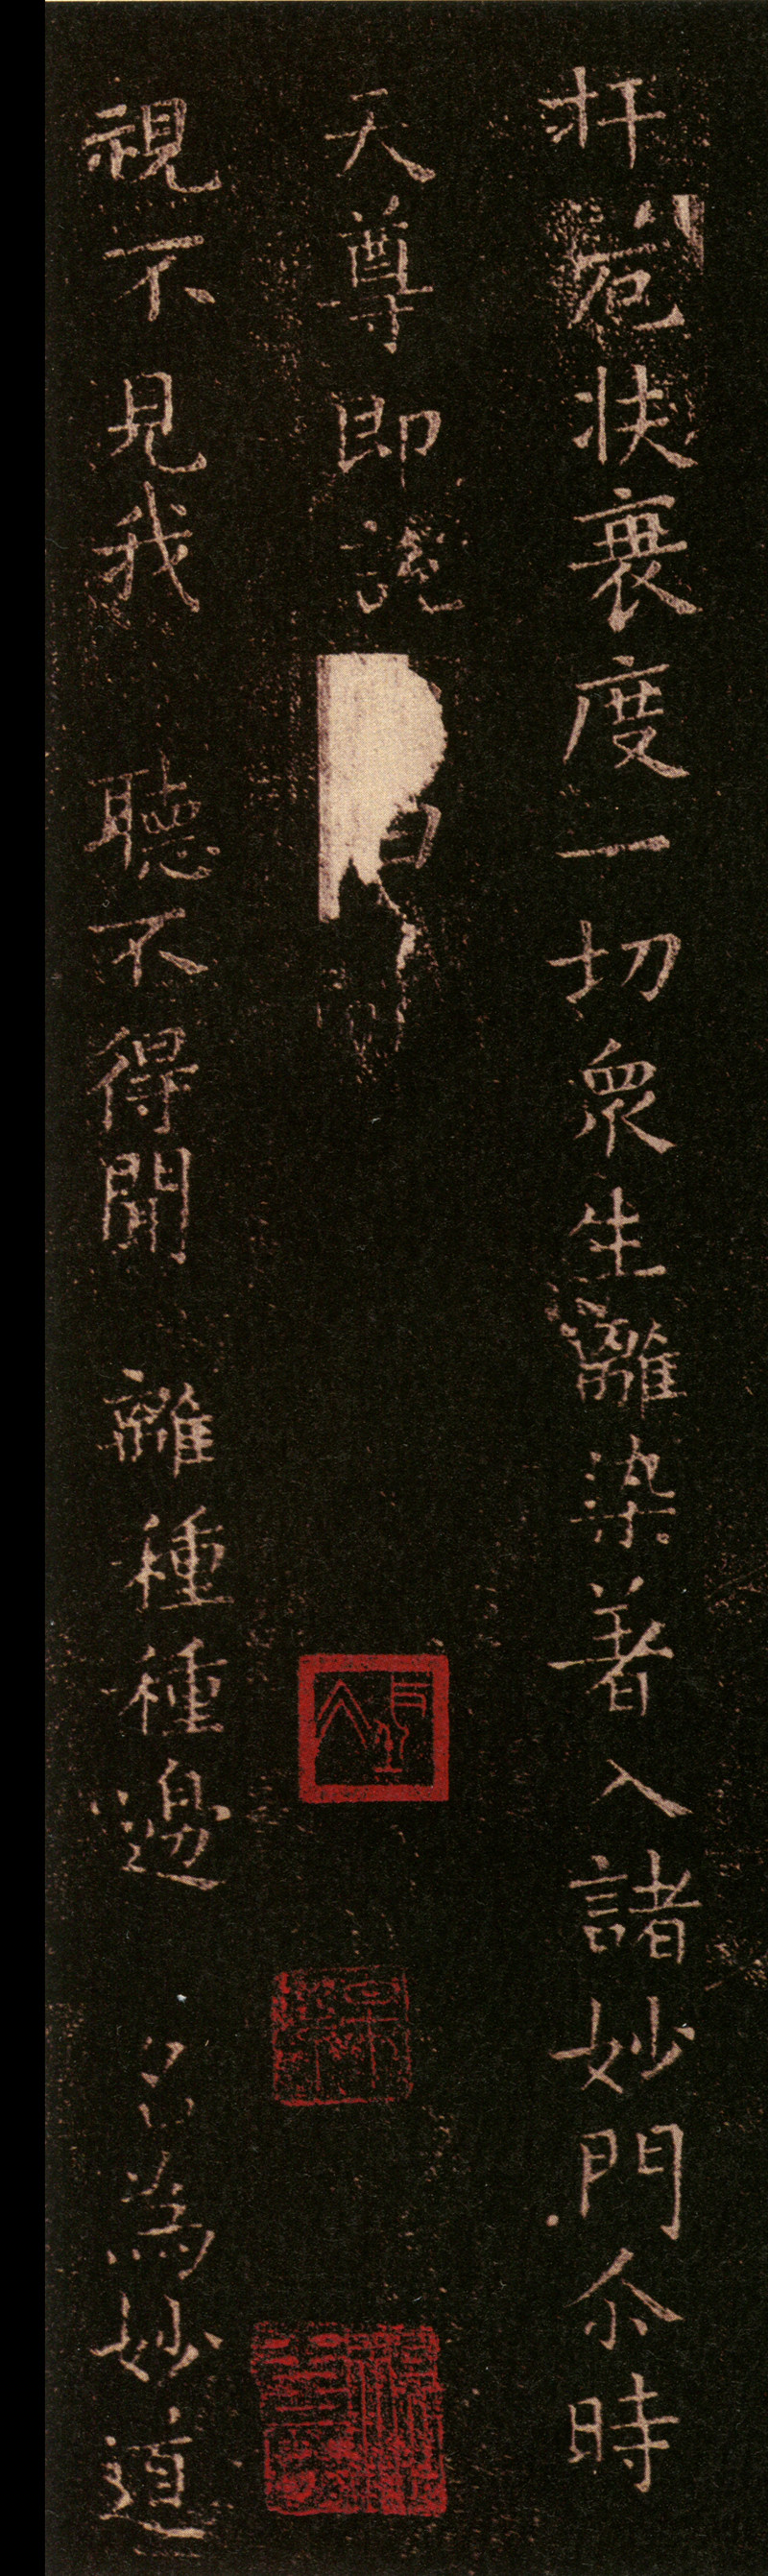 扞厄扶衰度一切衆生離染著入諸妙門尒時
天尊即說
視不見我 聽不得聞 離種種邊 名為妙道